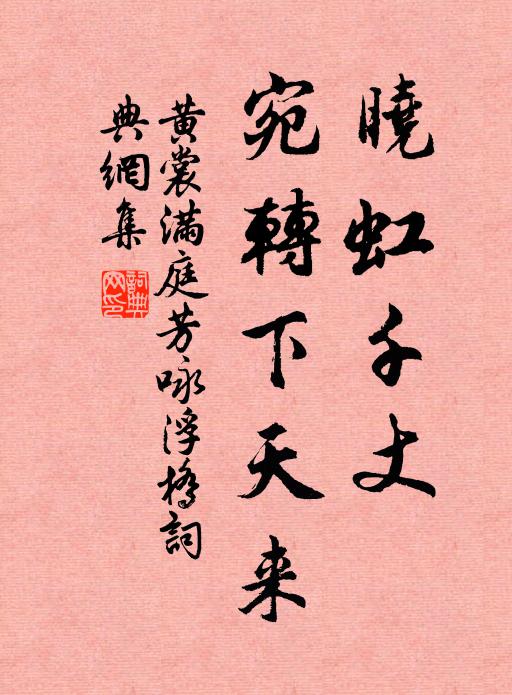 曉虹千丈
宛轉下天来
黄裳满庭芳咏浮橋詞
典網集
詞典网印